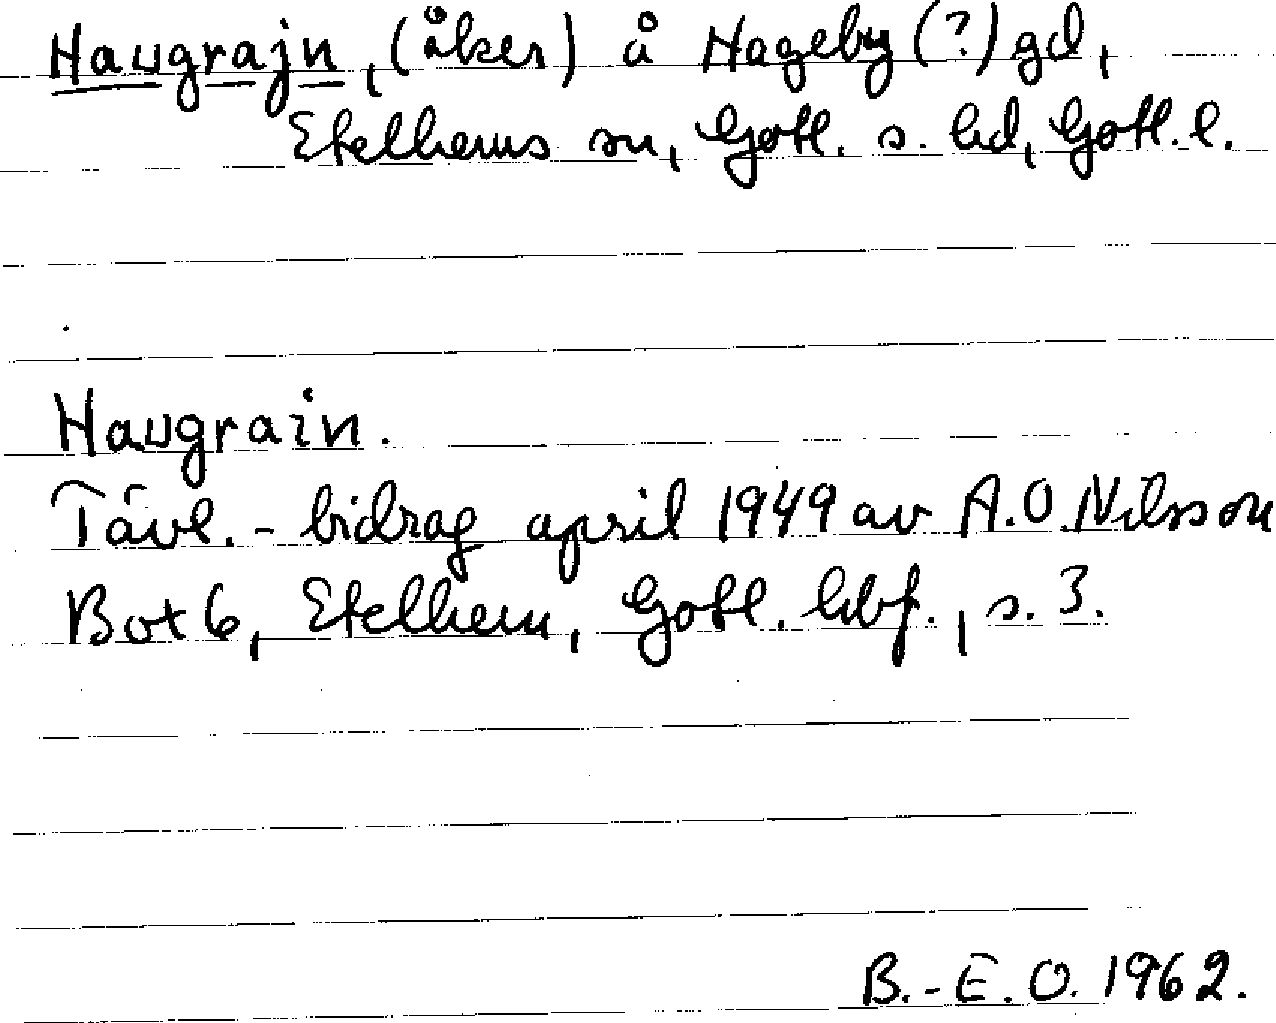 Haugrajn, (åker) å Hageby (?) gd,
Etelhems sn, Gotl. s. hd, Gotl. l.
Haugrain.
Tävl.-bidrag april 1949 av A.O. Nilsson
Bot 6, Etelhem, Gotl. hbf., s. 3.
B.-E.O. 1962.